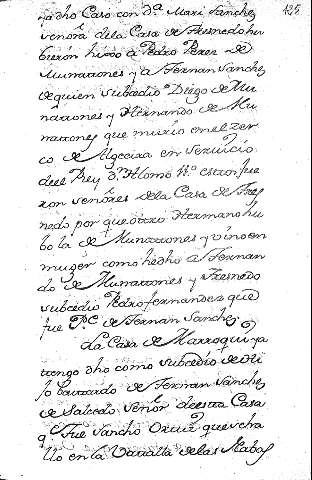 125
y a dho Caso con d.ª Mari Sanchez
señora dela Casa de Fresnedo hu
bieron hijos a Pedro Perez de
Munatones y a Fernan Sanchez
de quien subcedio Diego de Mu
ñatones y Hernando de Mu
ñatones que murio en el zer
co de Algecira en servicio
del Rey d.ⁿ Alonso estos fue
ron señores dela Casa de Fres
nedo por que otro Hermano hu
bo la de Munatones y vino en
muger como hedho a Fernan
do de Munatones y Fresnedo
subcedio Pedro fernandez que
fue de Fernan Sanchez
La Casa de Marroquin ya
tengo dho como subcedio de
bastardo de Fernan Sanchez
de Salcedo Señor de esta Casa
q.e Fue Sancho Ortiz que se ha
llo en la Vatalla de las Nabas